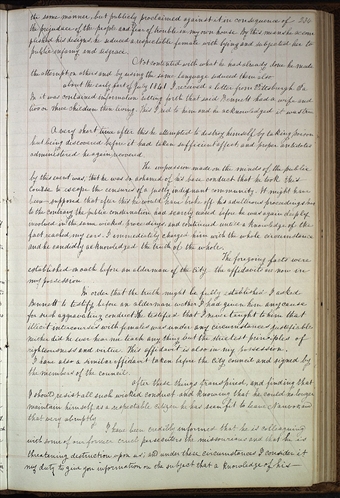 the same manner, but publicly proclaimed against it in consequence of 234
the prejudice of the people and fear of trouble in my own house. By this means he accom
plished his designs, he seduced a respectable female with lying and subjected her to
public infamy and disgrace.
Not contented with what he had already done he made
the attempt on others and by using the same language seduced them also
about the early part of July 1841 I received a letter from Pittsburgh Pa.
In it was contained information setting forth that said Bennett had a wife and
two or three children then living. This I read to him and he acknowledged it was true
A very short time after this he attempted to destroy himself by taking poison
but being discovered before it had taken sufficient effect and proper antidotes
administered he again recovered
The impression made on the minds of the public
by this event was, that he was so ashamed of his base conduct that he took this
course to escape the censures of a justly indignant community. It might have
been supposed that after this he would have broke off his adulterous proceedings but
to the contrary the public consternation had scarcely ceased before he was again deeply
involved in the same wicked proceedings and continued until a knowledge of the
fact reached my ears. I immediately charged him with the whole circumstance
and he candidly acknowledged the truth of the whole.
The foregoing facts were
established on oath before an alderman of the city. the affidavits are now in
my possession
In order that the truth might be fully established I asked
Bennett to testify before an alderman whether I had given him any cause
for such aggravating conduct. He testified that I never taught to him that
illicit intercourse with females was under any circumstances justifiable
neither did he ever hear me teach any thing but the strictest principles of
righteousness and virtue. This affidavit is also in my possession.
I have also a similar affidavit taken before the city council and signed by
the members of the council.
After these things transpired, and finding that
I should resist all such wicked conduct and knowing that he could no longer
maintain himself as a respectable citizen he has seen fit to leave Nauvoo and
that very abruptly
I have been credibly informed that he is colleaguing
with some of our former cruel persecutors the missourians and that he is
threatening destruction upon us; and under these circumstances I consider it
my duty to give you information on the subject that a knowledge of his